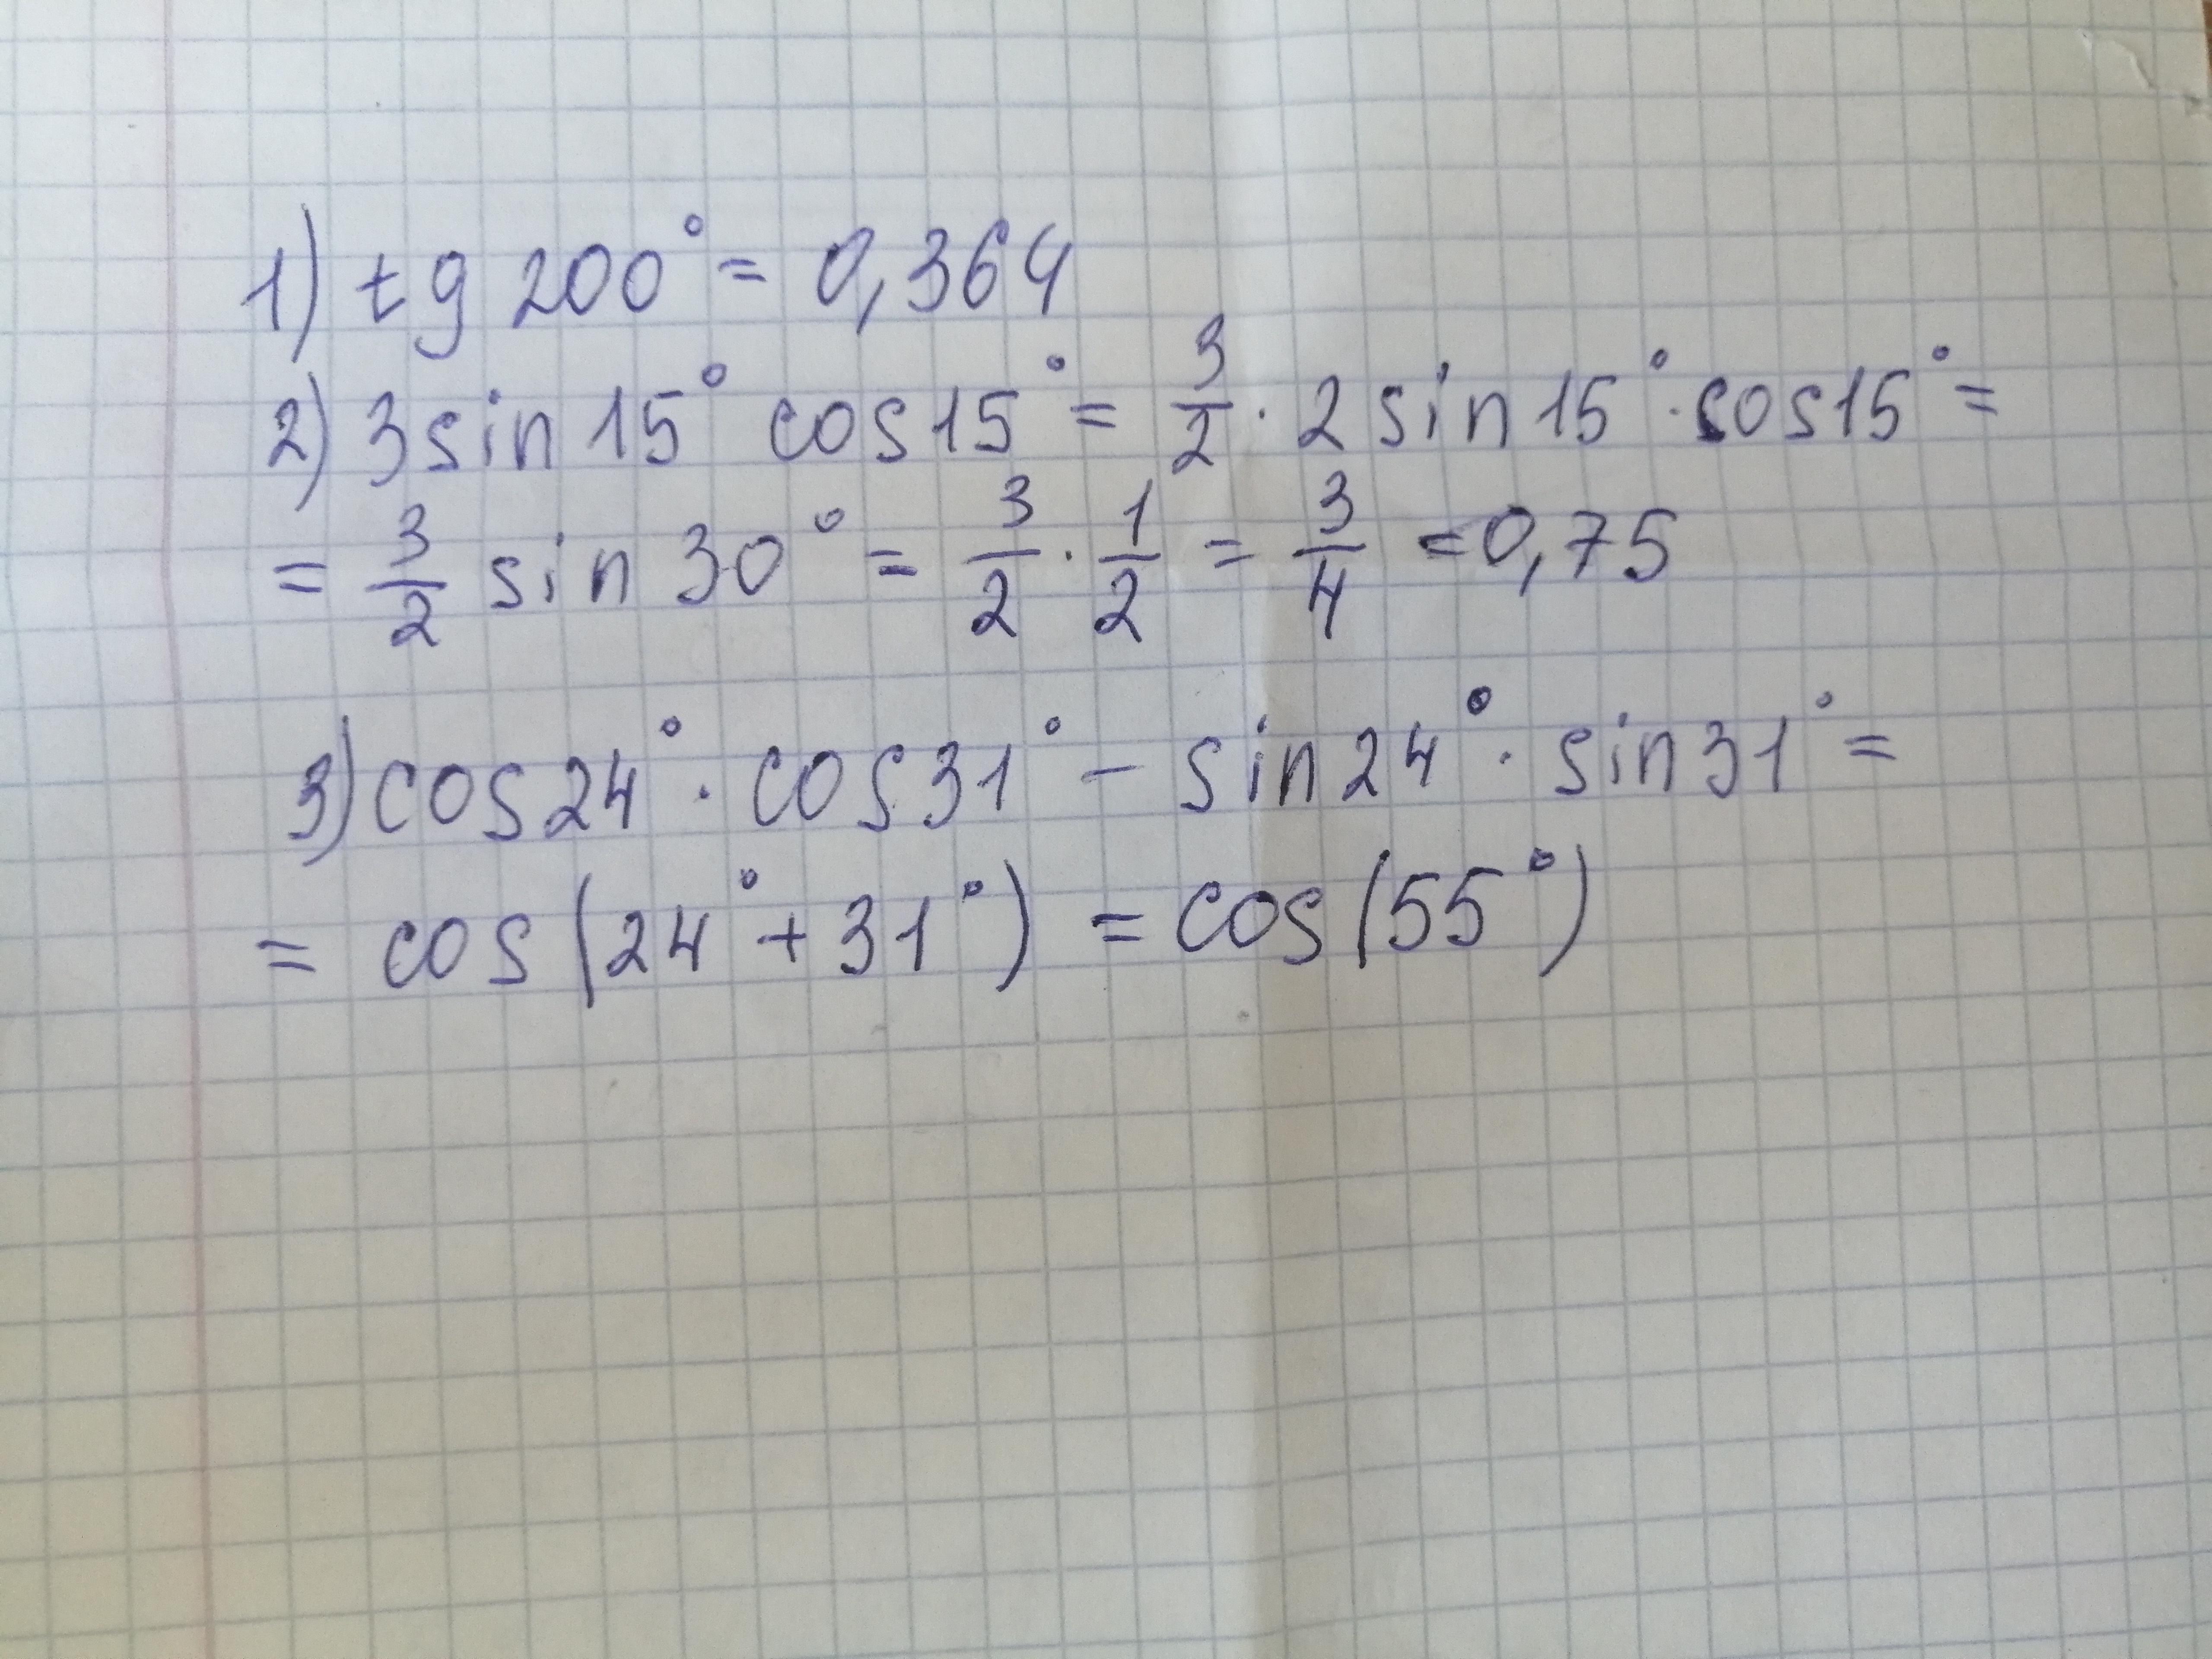 1) tg 200° = 0,364
2) 3 sin 15° cos 15° = 3/2 · 2 sin 15° · cos 15° =
= 3/2 sin 30° = 3/2 · 1/2 = 3/4 = 0,75
3) cos 24° · cos 31° - sin 24° · sin 31° =
= cos (24° + 31°) = cos (55°)